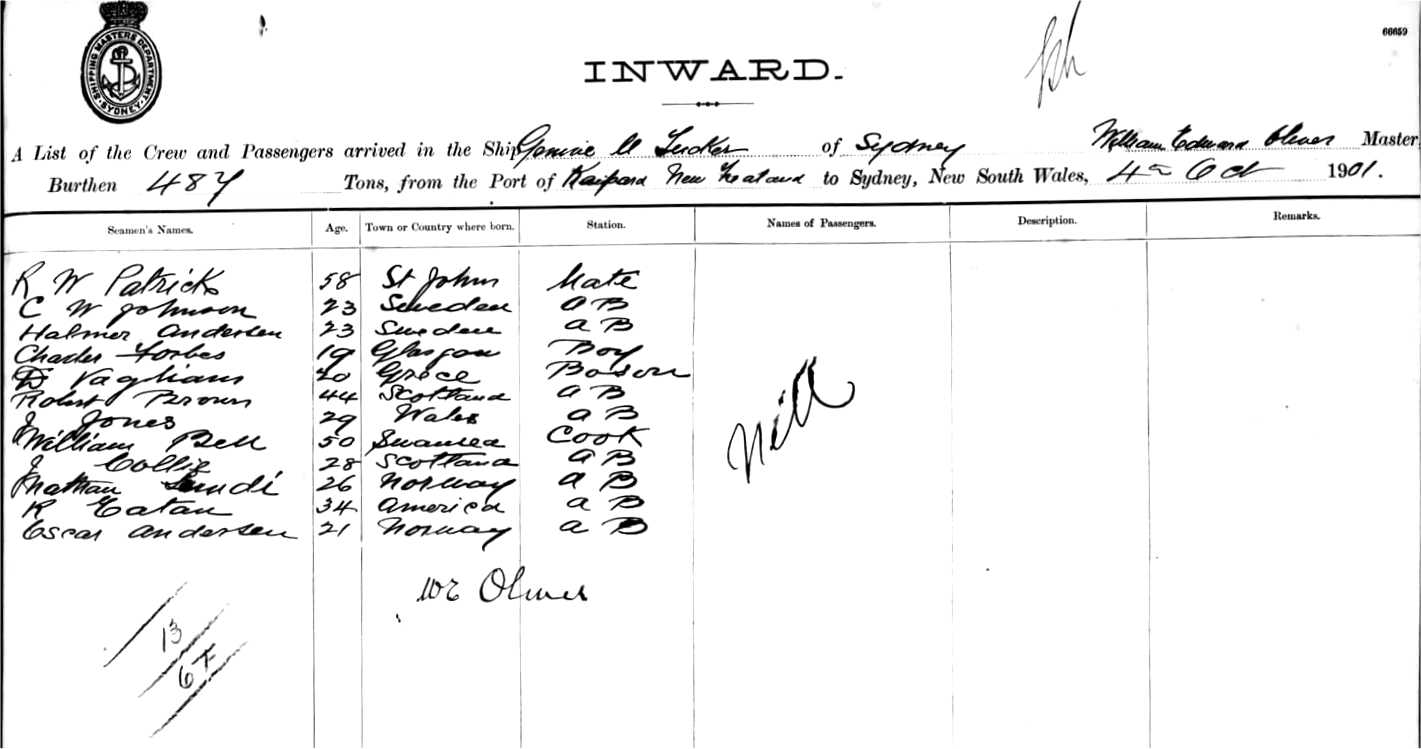 SHIPPING MASTERS DEPARTMENT
SYDNEY
66659
INWARD.
A List of the Crew and Passengers arrived in the Ship Tucker of Sydney William Edward Oliver Master,
Burthen 487 Tons, from the Port of Kaipara New Zealand to Sydney, New South Wales, 4th Oct 1901.
Seamen's Names. Age. Town or Country where born. Station. Names of Passengers. Description. Remarks.
R W Patrick 58 St Johns Mate
C W Johnson 23 Sweden A B
Halmer Andersen 23 Sweden A B
Charles Forbes 19 Glasgow Boy
D Vagliano 20 Grece Boson
Robert Brown 44 Scotland A B
J Jones 29 Wales A B
William Bell 50 Swansea Cook
J Collie 28 Scotland A B
Nathan 26 Norway A B
R Eatau 34 America A B
Oscar Andersen 21 Norway A B
Nill
WE Oliver
13
6